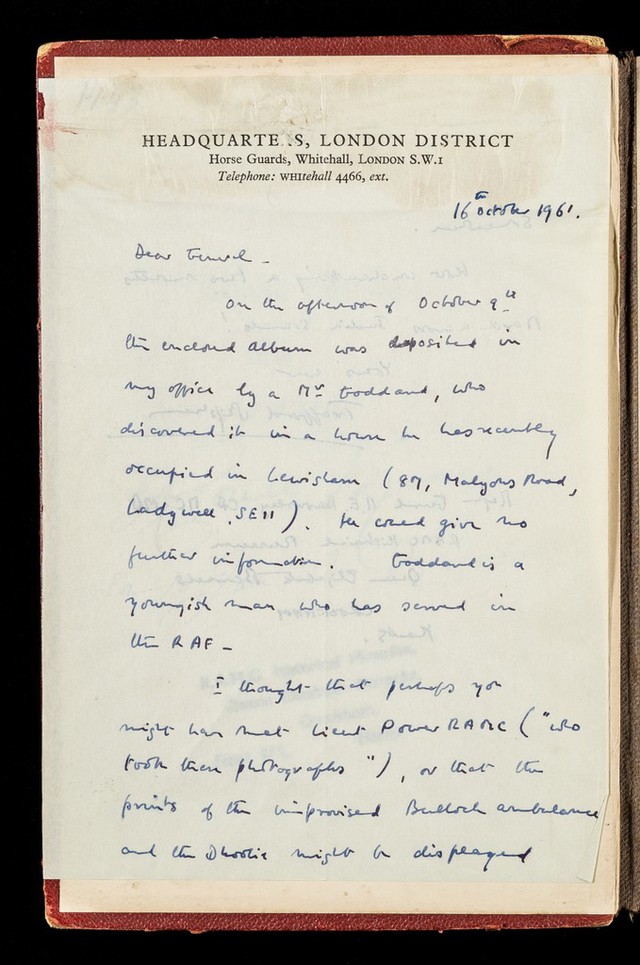 HEADQUARTE S, LONDON DISTRICT
Horse Guards, Whitehall, LONDON S.W.1
Telephone: WHItehall 4466, ext.
16th October 1961.
Dear General -
On the afternoon of October 9th
the enclosed album was deposited in
my office by a Mr Goddard, who
discovered it in a house he has recently
occupied in Lewisham (87, Malyons Road,
Ladywell, SE11). He could give no
further information. Goddard is a
youngish man who has served in
the RAF -
I thought that perhaps you
might have met Lieut Power RAMC ("who
took these photographs"), or that the
prints of the improvised Bullock ambulance
and the Dhoolie might be displayed